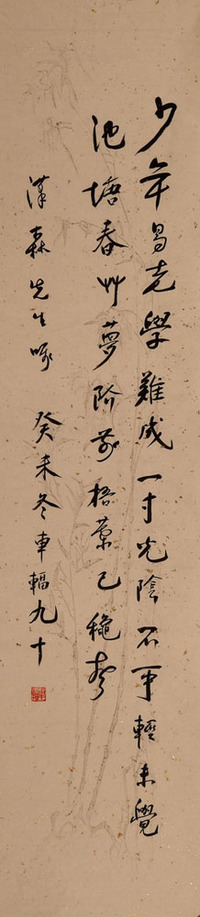 少年易老學難成一寸光陰不可輕未覺
池塘春艸夢階前梧葉已穐聲
漢森先生啄
癸未冬車輻九十